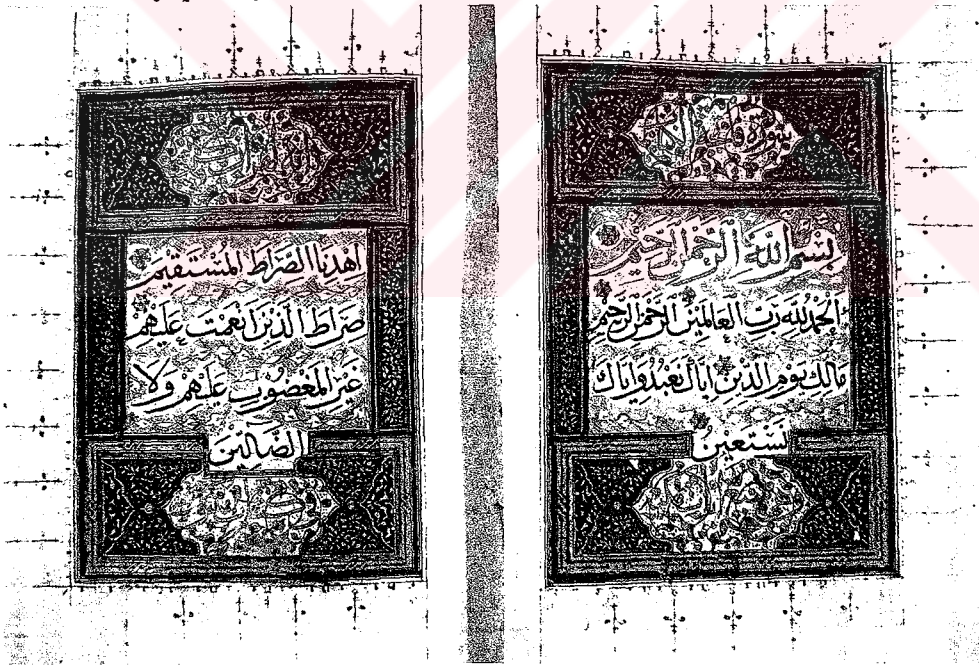 بِسْمِ اللَّهِ الرَّحْمٰنِ الرَّحِيْمِ
اَلْحَمْدُ لِلَّهِ رَبِّ الْعَالَمِينَ الرَّحْمٰنِ الرَّحِيْمِ
مَالِكِ يَوْمِ الدِّينِ اِيَّاكَ نَعْبُدُ وَاِيَّاكَ
نَسْتَعِينُ
اهْدِنَا الصِّرَاطَ الْمُسْتَقِيمَ
صِرَاطَ الَّذِينَ اَنْعَمْتَ عَلَيْهِمْ
غَيْرِ الْمَغْضُوبِ عَلَيْهِمْ وَلَا
الضَّالِّينَ